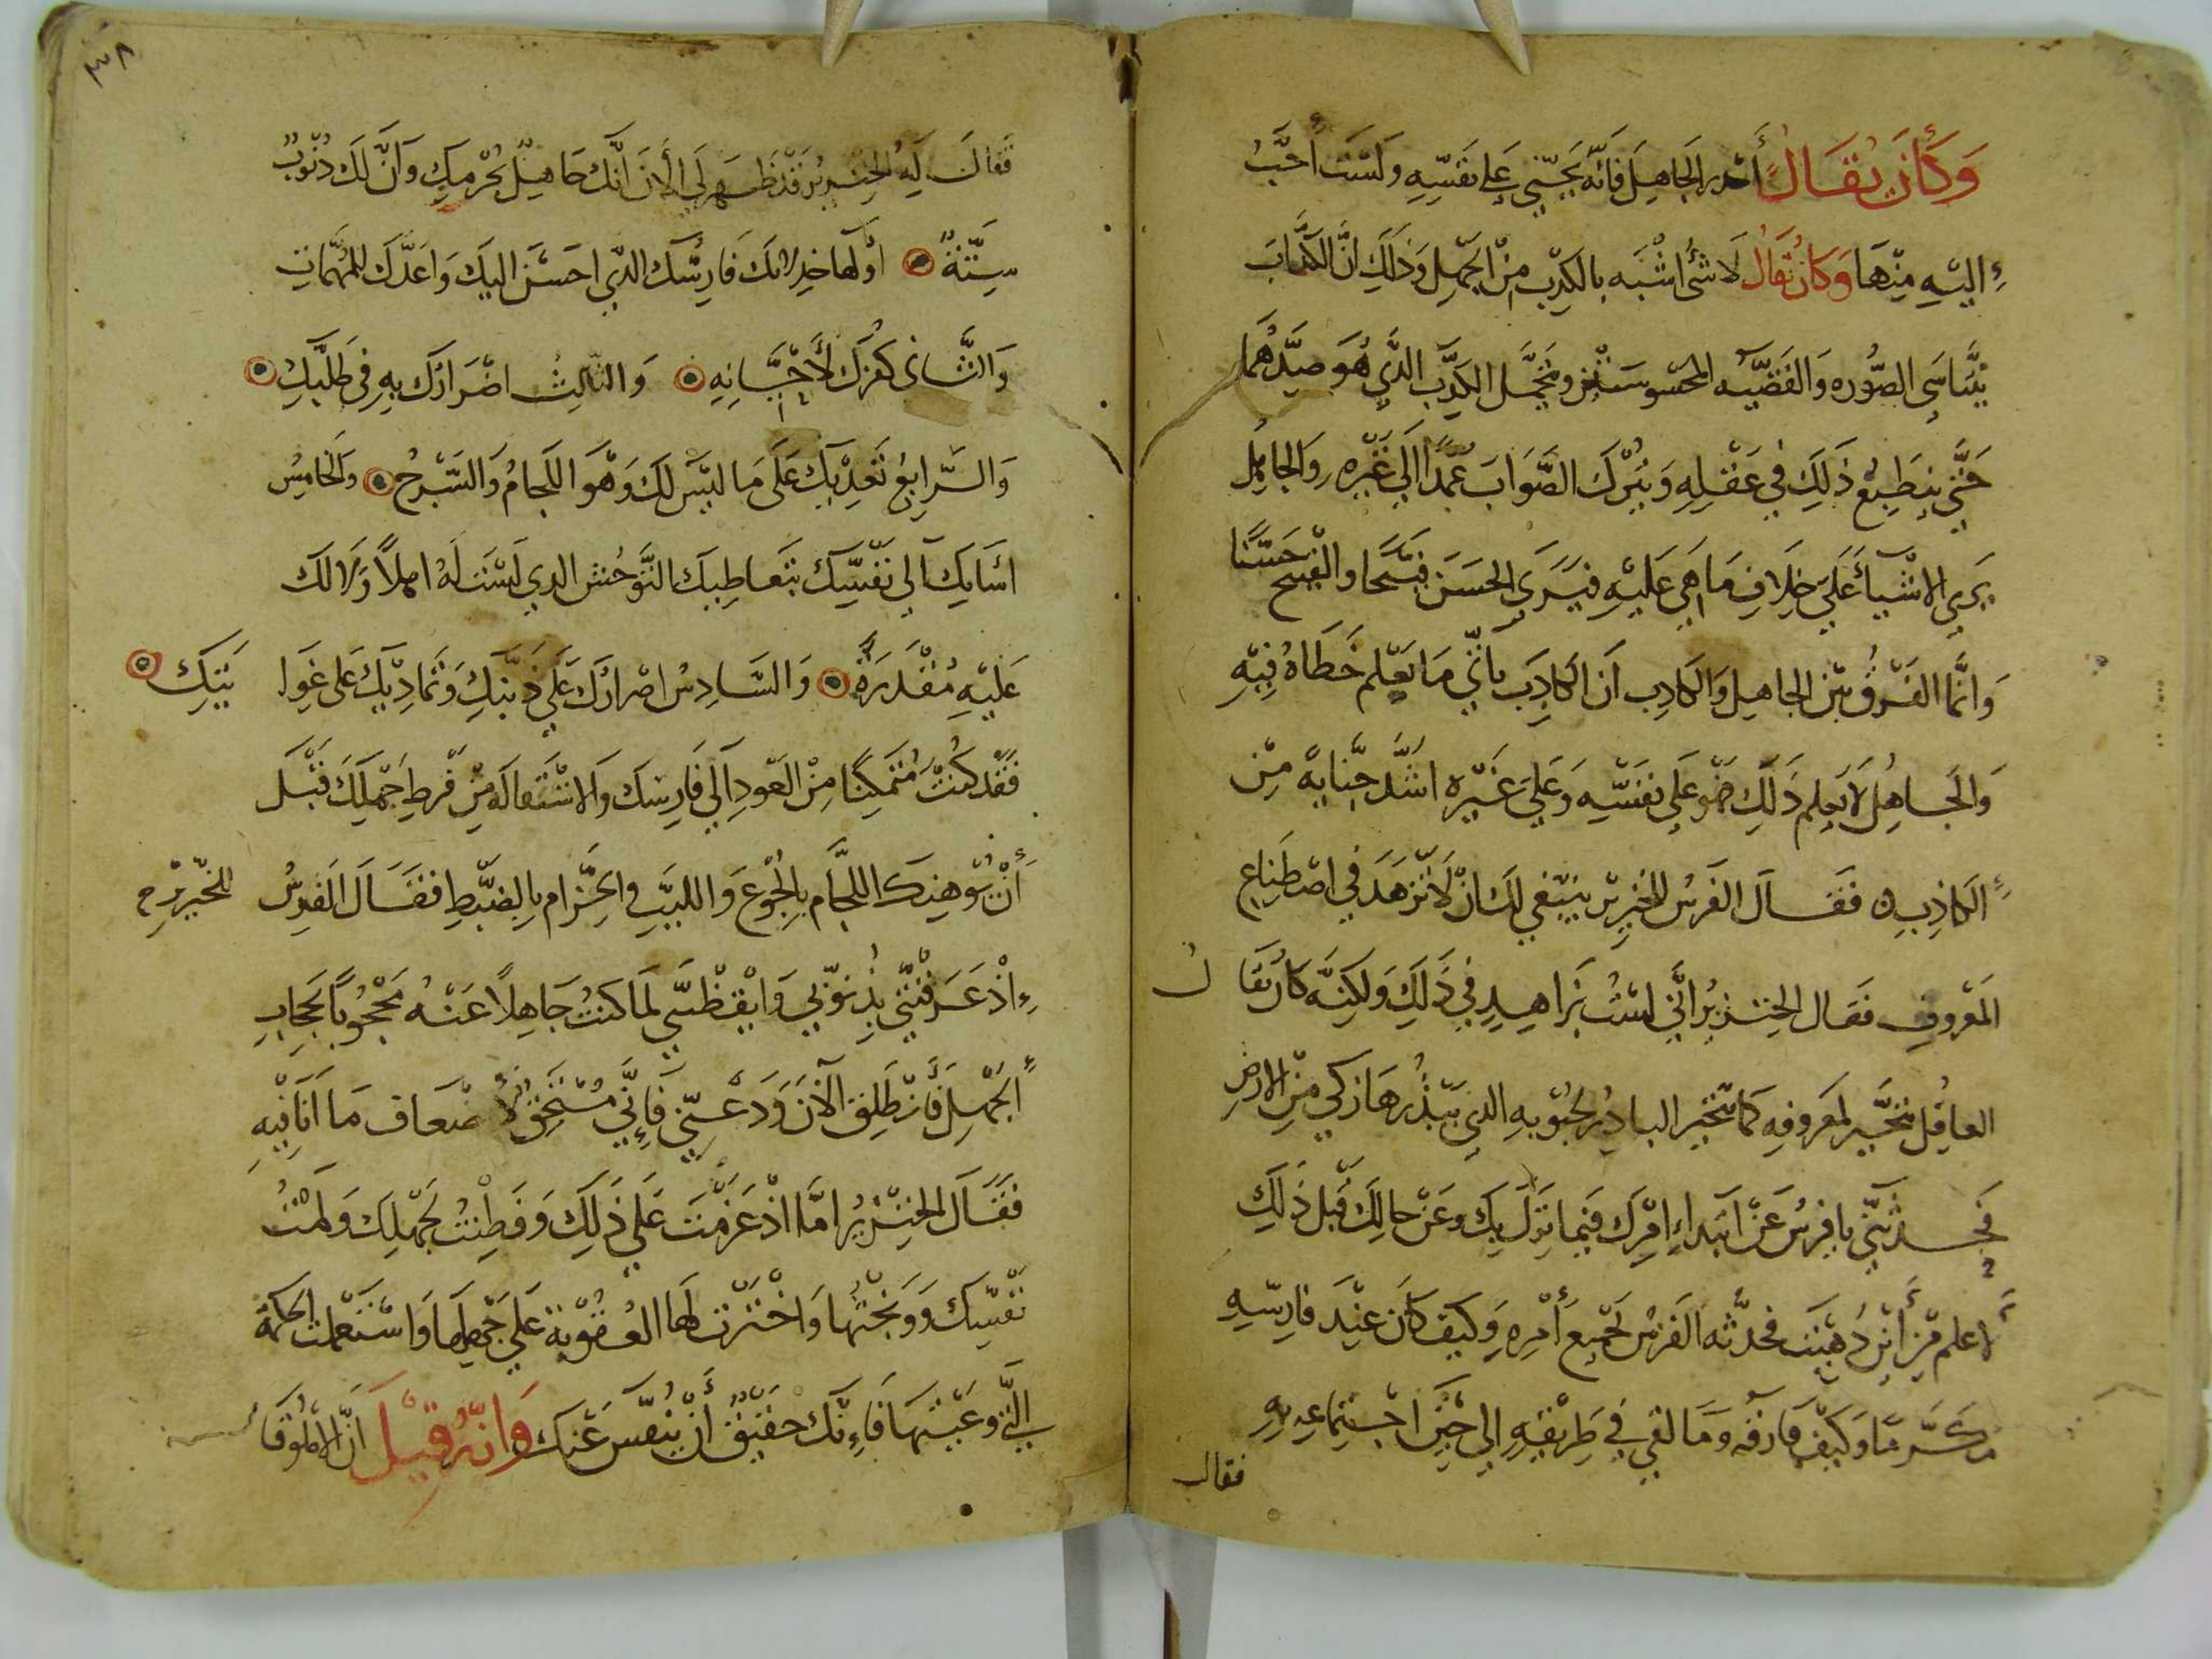 وَكَانَ يُقَالُ أحْدر الجَاهِل فَانّه يَجنِي عَلي نَفسِهِ وَلسْتَ أحَبُّ
اليْهِ مِنْهَا وَكَانَ يُقَالُ لَا شئ اشْبَه بالكِدْب مِنْ الجَهْل وَذَلِكَ انَّ الكَدَّابَ
يتَنَاسَي الصُّوره وَالقَضيَّه المحْسُوسَتيْن ويتخَيَّل الكِدْب الدِّي هُوَ ضِدَّهُمَا
حَتَّي ينطَبِعُ ذَلِكَ فِي عَقْلِهِ وَيُتركَ الصَّوَابَ عَمْدًا اِلَي غَيْرِهِ وَالجَاهِل
يَرَي الاشْيَأ عَلَي خِلَافِ مَا هِيَ عَليْهِ فيَرَي الحسَنَ قبيْحًا والقَبيْح حَسَنًا
وَانَّما الفَرْقُ بَيْن الجاهِل وَالكَادِب اَن الكَادِب يَاتِي مَا يَعْلم خَطَاهُ فِيْهِ
وَالجَاهِلُ لَا يَعلم ذَلِكَ فهُوَ عَلَي نفْسِهِ وَعَلي غَيْرهِ اشَدّ جنَايَة مِنَ
الكَاذِبِ ۞ فَقَالَ الفَرَسُ للخنزِيْر يَنبَغي لكَ انْ لَا تَزْهَدَ فِي اصْطِنَاعِ
المَعْروفِ فقَال الخِنْزِيْرُ انِّي لسْتُ بزَاهِدٍ فِي ذَلِكَ وَلكِنَّه كَانَ يُقَالُ
العاقِلُ يتَخيَّر لمعَروفِهِ كَمَا يتَخيَّر البادِرُ لحبُوْبهِ الدي يَبْذُرهَا زكي مِنَ الارْضِ
فحَدثْنِي يا فرسُ عَنْ ابْتَداءِ امْرِكَ فيْمَا نزَلَ بِكَ وَعَنْ حالِكَ قَبل ذَلِكَ
لاعلم مِنْ أيْنَ دُهيْتَ فحدَّثه الفَرسْ بجَمِيع أَمْرِهِ وَكيْفَ كَانَ عِنْدَ فَارِسِهِ
مُكَرَّمًا وَكيْفَ فَارقَهُ وَمَا لقي فِي طَرِيْقِهِ الي حِيْن اجْتمَاعِهِ بهِ
فقال
٣٨
فَقالَ لَهُ الخِنْزِيرُ قدْ ظَهَرَ لَي الأنَ انَّكَ جَاهِلٌ بجُرْمِكِ وَانَّ لَكَ دُنُوْبٌ
سِتَّةٌ ۞ اوّلهَا خِدلانكَ فَارِسُكَ الدِّي احسَنَ اليْكَ وَاعَدَّكَ للمهِمَّاتِ
وَالثَّانى كُفْرك لأحْسَانِهِ ۞ وَالثَّالِثُ اضْرَارُك بِهِ فِي طَلبِكَ ۞
وَالرَّابِعُ تَعدِيْكَ عَلَي مَا ليْسَ لكَ وَهُوَ اللجَامُ وَالسَّرْجُ ۞ وَالخَامِسُ
اسَايَتكَ الي نفْسِكَ بتَعاطِيكَ التَّوحُش الدي لَسْتَ لَهُ اهلاً وَلَا لَكَ
عَليْهِ مُقْدَرَةٌ ۞ وَالسَّادِسُ اصْرارُكَ عَلَي ذَنْبِكَ وَتمَادِيْكَ عَلي غَوايَتِكَ ۞
فَقَدْ كُنْتَ مُتَمكِنًا مِنْ العَودِ اَلَي فَارِسِكَ وَالاسْتقالَه مِنْ فرطِ جَهْلِكَ قَبْلَ
أَنْ يُوْهِنكَ اللجَام بِالجُوعِ وَاللببِ والحِزَام بِالضَّبطِ فَقَالَ الفَرسُ للخنْزِيْرِ
اِذْ عَرَفْتَنِي بِذُنوْبِي وَايْقَظْتَنِي لمَا كنْتُ جَاهِلًا عَنْهُ مَحْجُوبًا بحِجَابِ
الجَهْلِ فَانْطَلِق الآنَ وَدَعْنِي فَإِنِّي مُسْتَحِقٌ لأضْعَاف مَا أَنَا فِيْهِ
فَقَالَ الخنْزِيْرُ امَّا اذْ عَزمْتَ عَلَي ذَلِكَ وَفَطِنْتُ لجَهْلِكَ وَلُمْتُ
نفْسِكَ وَوَبخْتهَا وَاخْتَرْت لَهَا العُقُوْبَة عَلَي جَهْلِهَا وَاسْتَعْمَلت الحِكمَة
الَّتِي وعَيْتَهَا فَاِنَّكَ حَقيْقٌ أنْ يُنفَّسَ عَنكَ وَانّهُ قِيْلَ انَّ الأطوْقَا